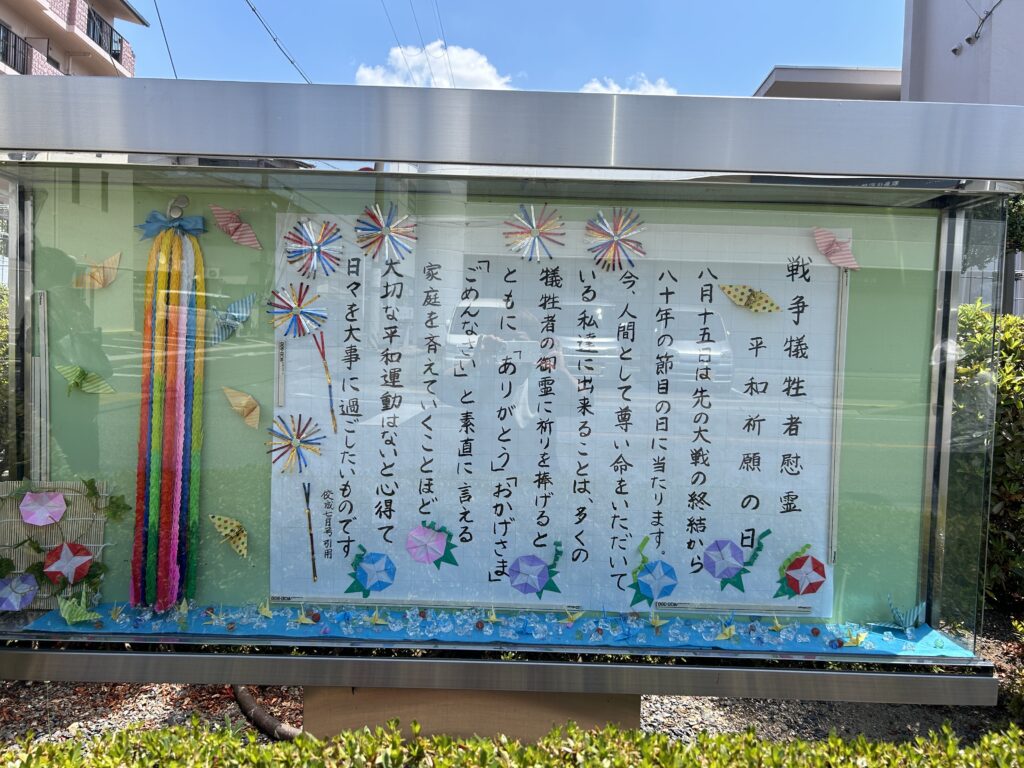 戦争犠牲者慰霊
平和祈願の日
八月十五日は先の大戦の終結から
八十年の節目の日に当たります。
今、人間として尊い命をいただいて
いる私達に出来ることは、多くの
犠牲者の御霊に祈りを捧げると
ともに「ありがとう」「おかげさま」
「ごめんなさい」と素直に言える
家庭を斉えていくことほど
大切な平和運動はないと心得て
日々を大事に過ごしたいものです
佼成七月号引用